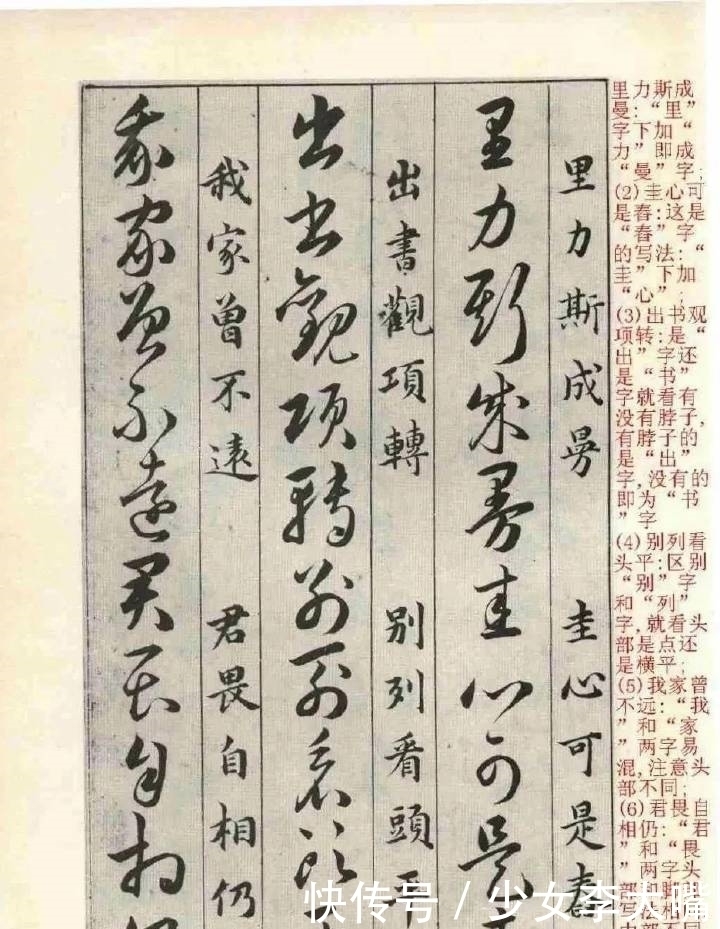 里力斯成
曼:“里”
字下加“
力”即成
“曼”字;
(2)圭心可
是春:这是
“春”字
的写法:“
圭”下加
“心”;
(3)出书观
项转:是“
出”字还
是“书”
字就看有
没有脖子,
有脖子的
是“出”
字,没有的
即为“书
”字
(4)别列看
头平:区别
“别”字
和“列”
字,就看头
部是点还
是横平;
(5)我家曾
不远:“我
”和“家
”两字易
混,注意头
部不同;
(6)君畏自
相仍:“君
”和“畏
”两字头
写法相
里力斯成曼 圭心可是春
里力斯成曼圭心可是
出書觀項轉 别列看頭平
出書觀項轉别列看頭
我家曾不遠 君畏自相仍
我家曾不遠君畏自相仍
快传号 / 少女李大嘴